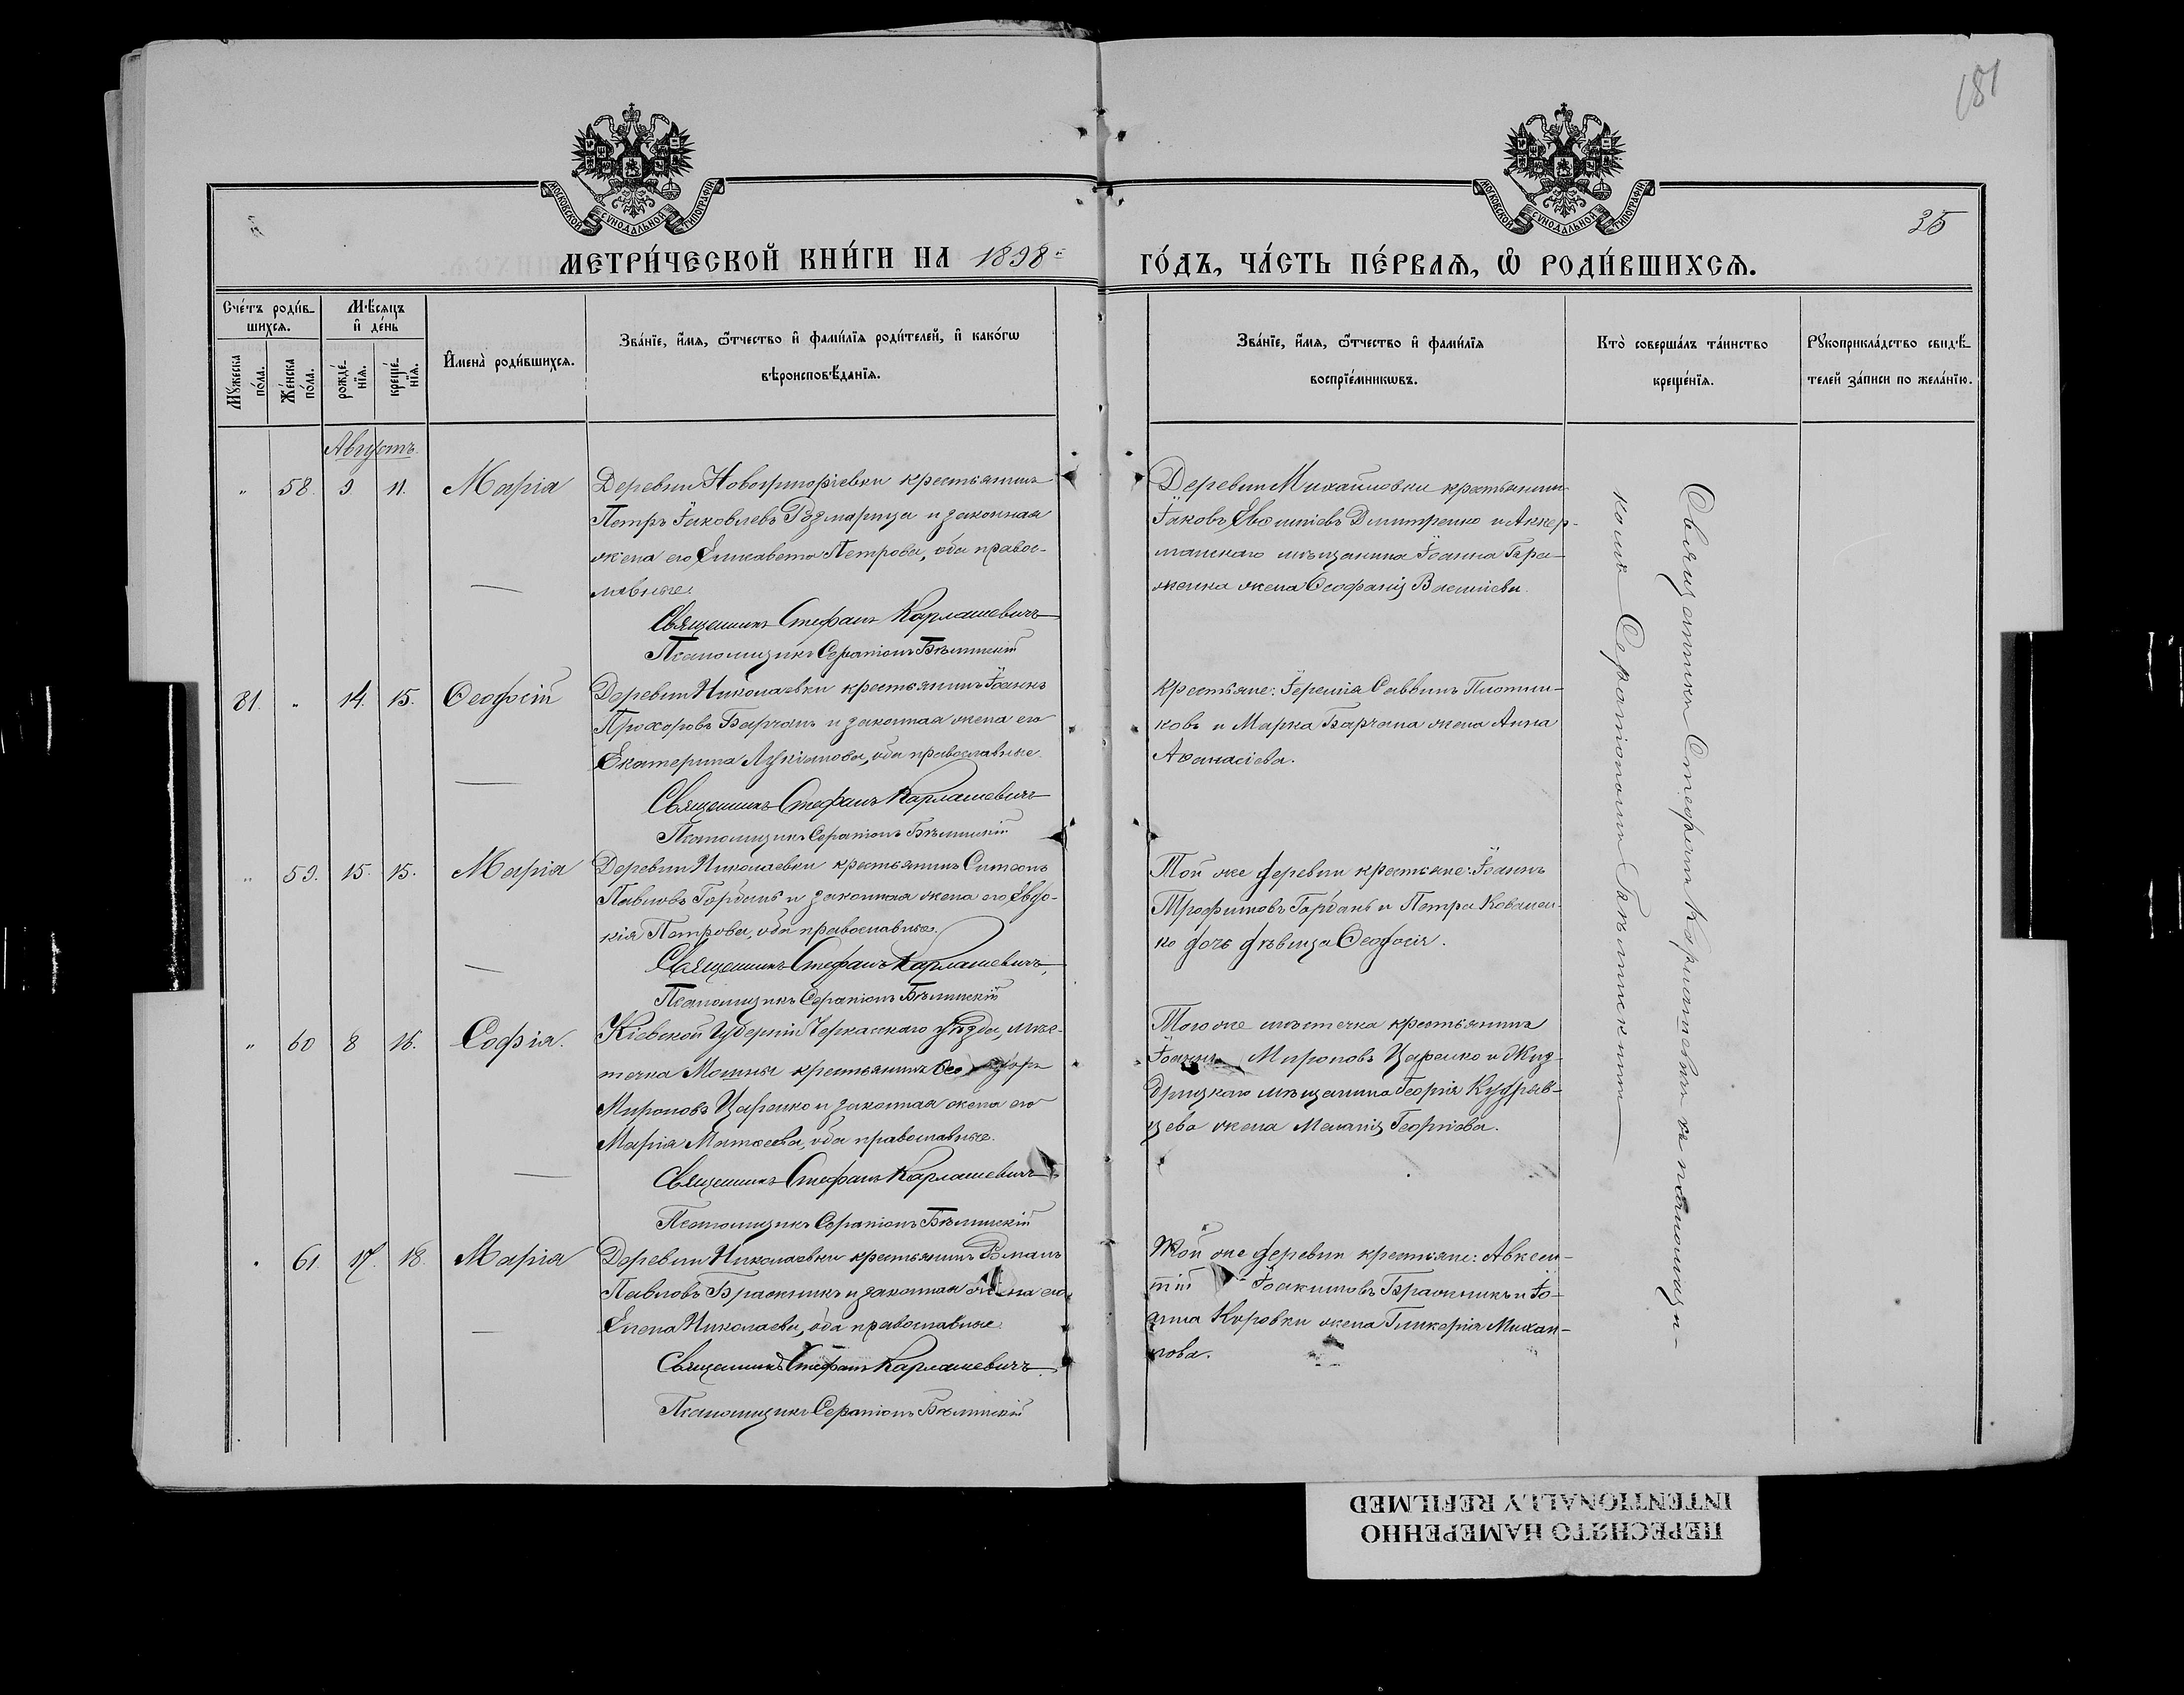 181
МОСКОВСКОЙ СѴНОДАЛЬНОЙ ТИПОГРАФІИ
МОСКОВСКОЙ СѴНОДАЛЬНОЙ ТИПОГРАФІИ
35
МЕТРИ́ЧЕСКОЙ КНИ́ГИ НА 1898й
ГО́ДЪ, ЧА́СТЬ ПЕ́РВАЯ, Ѽ РОДИ́ВШИХСЯ.
Сче́тъ роди́в-
шихся.
Мѣ́сяцъ
и҆ де́нь
Мꙋ́жеска
по́ла.
Же́нска
по́ла.
рожде́-
нїя.
креще́-
нїя.
И҆мена̀ роди́вшихся.
Зва́нїе, и҆́мя, ѻ҆́тчество и҆ фами́лїя роди́телей, и҆ како́гѡ
вѣроисповѣ́данїя.
Зва́нїе, и҆́мя, ѻ҆́тчество и҆ фами́лїя
воспрїе́мникѡвъ.
Кто̀ соверша́лъ та́инство
креще́нїя.
Рꙋкоприкла́дство свидѣ́-
телей за́писи по жела́нїю.
Августъ.
" 58. 9 11. Марія
Деревни Новотрофіевки крестьянинъ
Петръ Іаковлевъ и законная
жена его Елисавета Петрова, оба правос-
лавные.
Священникъ Стефанъ Карлашевичъ
Псаломщикъ Серапіонъ Бѣлинскій
Деревни Михайловки крестьянинъ
Іаковъ Дмитренко и Аккер-
манскаго мѣщанина Іоанна
жена Ѳеофанія Василіева.
81. " 14. 15. Ѳеодосій
Деревни Николаевки крестьянинъ Іоаннъ
Прохоровъ Барчанъ и законная жена его
Екатерина Лукіанова, оба православные.
Священникъ Стефанъ Карлашевичъ
Псаломщикъ Серапіонъ Бѣлинскій
Крестьяне: Іеремія Саввинъ Плотни-
ковъ и Марка Барчана жена Анна
Аѳанасіева.
" 59. 15. 15. Марія
Деревни Николаевки крестьянинъ Симеонъ
Павловъ Горбань и законная жена его Евдо-
кія Петрова, оба православные.
Священникъ Стефанъ Карлашевичъ,
Псаломщикъ Серапіонъ Бѣлинскій
Той же деревни крестьяне: Іоаннъ
Трофимовъ Горбань и Петра Ковален-
ко дочь дѣвица Ѳеодосія.
" 60 8 16. Софія.
Кіевской Губерніи Черкасскаго уѣзда, мѣс-
течка Мошны крестьянинъ Ѳеодоръ
Мироновъ Царенко и законная жена его
Марія Матѳеева, оба православные.
Священникъ Стефанъ Карлашевичъ
Псаломщикъ Серапіонъ Бѣлинскій
Того же мѣстечка крестьянинъ
Іоаннъ Мироновъ Царенко и Жиз-
дринскаго мѣщанина Георгія Кудряв-
цева жена Меланія Георгіева.
" 61. 17. 18. Марія
Деревни Николаевки крестьянинъ Романъ
Павловъ Бражникъ и законная жена его
Елена Николаева, оба православные.
Священникъ Стефанъ Карлашевичъ.
Псаломщикъ Серапіонъ Бѣлинскій
Той же деревни крестьяне: Авксен-
тій Іоакимовъ Бражникъ и Іо-
анна Коровки жена Гликерія Михаи-
лова.
Священникъ Стефанъ Карлашевичъ съ псаломщи-
комъ Серапіономъ Бѣлинскимъ
ПЕРЕСНЯТО НАМЕРЕННО
INTENTIONALLY REFILMED